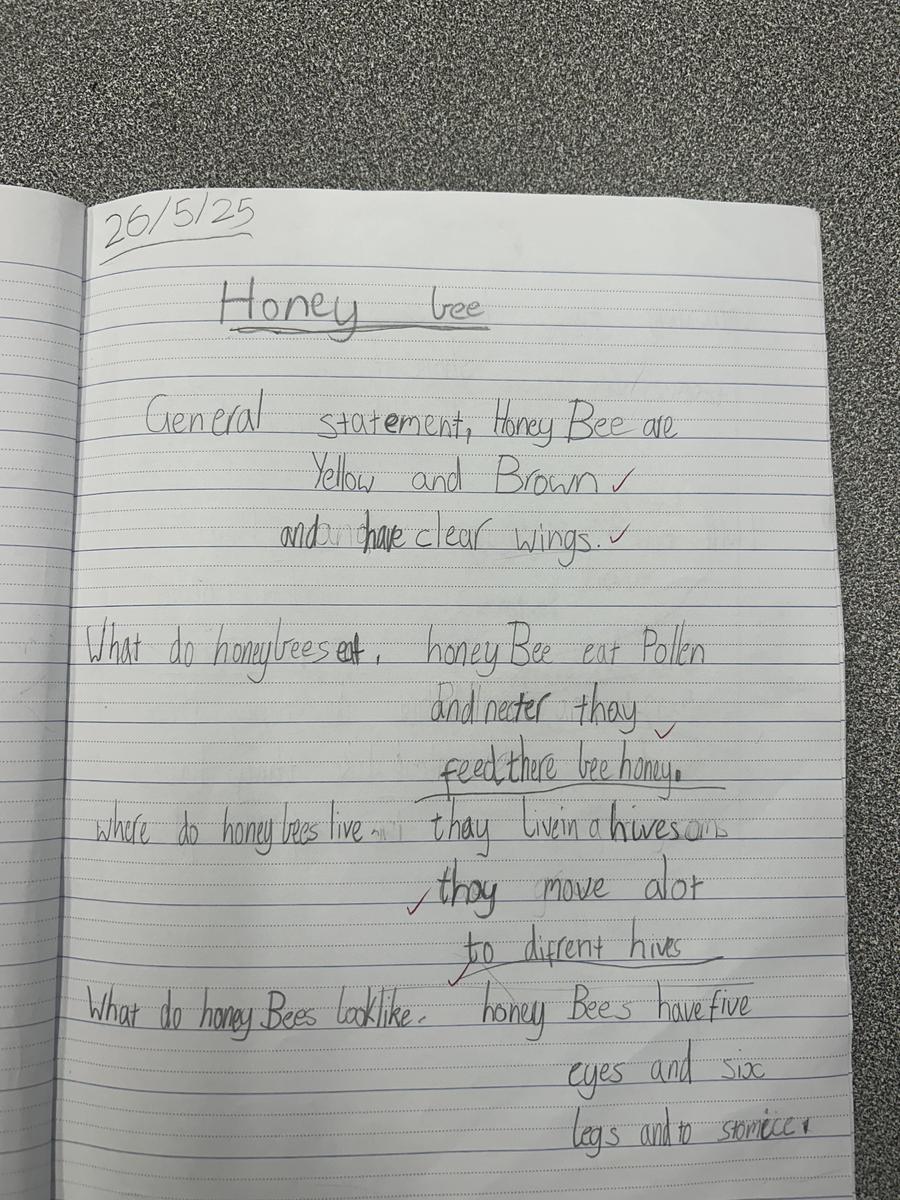 26/5/25
Honey bee
General statement, Honey Bee are
Yellow and Brown
and have clear wings.
What do honeybees eat. honey Bee eat Pollen
and necter thay
feed there bee honey.
where do honey bees live thay live in a hives
thay move alot
to difrent hives
What do honey Bees look like. honey Bees have five
eyes and six
legs and to